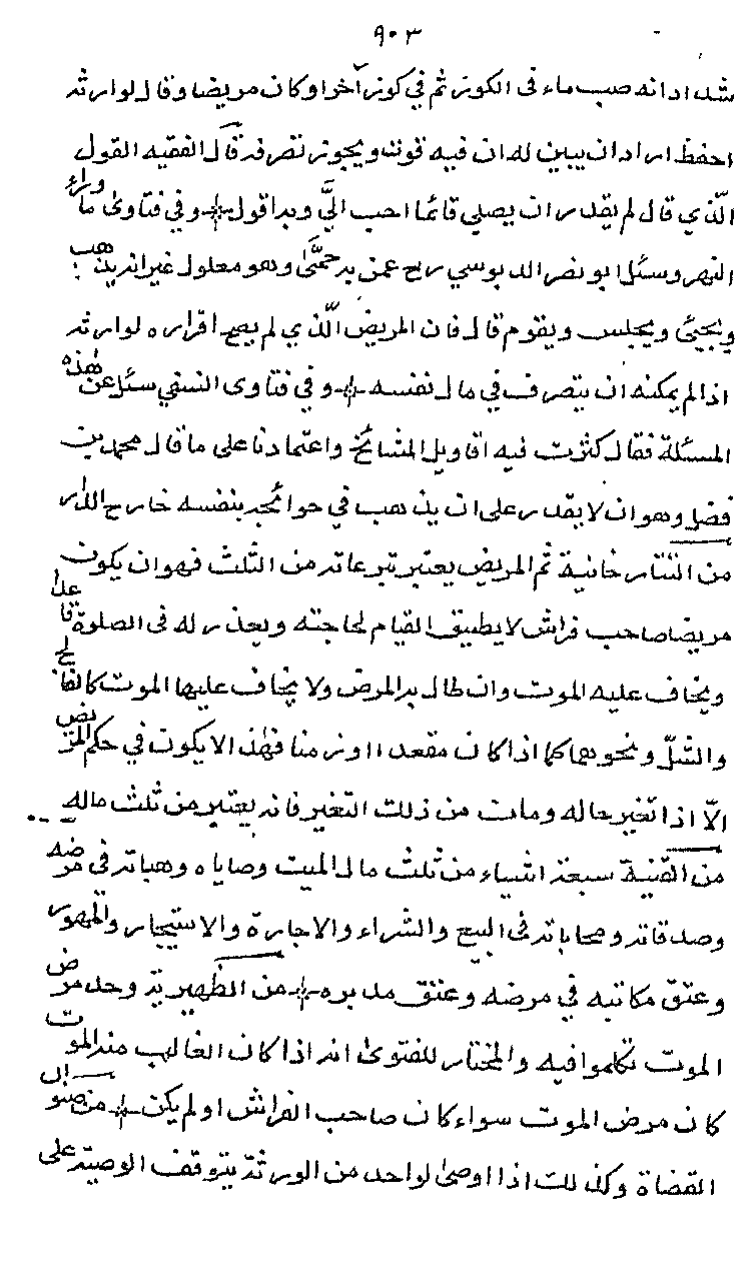 ٩٠٣
شد ادانه صب ماء فى الكوز ثم في كوز آخر او كان مريضا وقال لوارثه
احفظ اراد ان يبين له ان فيه قوته ويجوز تصرفه قال الفقيه القول
الّذي قال لم يقدر ان يصلي قائما احب اليَّ وبه اقول وفي فتاوىٰ ما وراء
النهر وسئل ابو نصر الدبوسي رح عمن به حمّىٰ وهو معلول غير انه يذهب
ويجيئ ويجلس ويقوم قال فان المريض الّذي لم يصح اقراره لوارثه
اذا لم يمكنه ان يتصرف في مال نفسه وفي فتاوى النسفي سئل عن هٰذه
المسئلة فقال كثرت فيه اقاويل المشائخ واعتمادنا على ما قال محمد بن
فضل وهو ان لا يقدر على ان يذهب في حوائجه بنفسه خارج الدار
من التتارخانية ثم المريض يعتبر تبرعاته من الثلث فهو ان يكون
مريضا صاحب فراش لا يطيق القيام لحاجته ويعذر له فى الصلوة قاعدا
ويخاف عليه الموت وان طال به المرض ولا يخاف عليها الموت كالفالج
والشلّ ونحوهما كما اذا كان مقعدا او زمنا فهٰذا لا يكون في حكم المريض
الّا اذا تغير حاله ومات من ذلك التغير فانه يعتبر من ثلث ماله
من القنية سبعة اشياء من ثلث مال الميت وصاياه وهباته فى مرضه
وصدقاته ومحاباته فى البيع والشراء والاجارة والاستيجار والمهور
وعتق مكاتبه في مرضه وعتق مدبره من الظهيرية وحد مرض
الموت تكلموا فيه والمختار للفتوىٰ انه اذا كان الغالب منه الموت
كان مرض الموت سواء كان صاحب الفراش او لم يكن من صنوان
القضاة وكذلك اذا اوصىٰ لواحد من الورثة يتوقف الوصية على